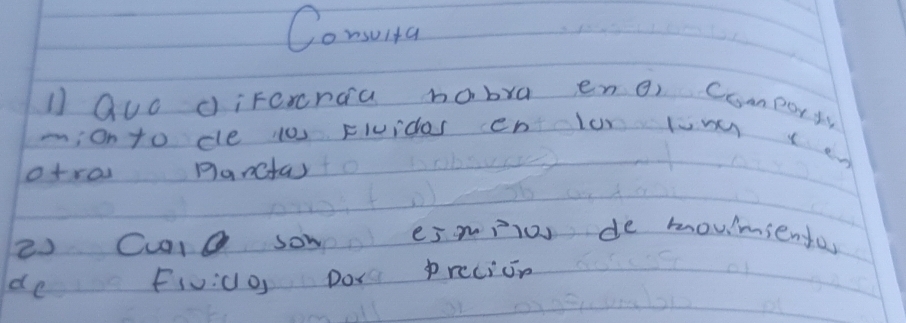 Consulta
1) Que diferencia habra en el comporta
miento de los Fluidos en la luna y en
otros Planetas
2) Cual son ejemplos de movimientos
de Fluidos por precion